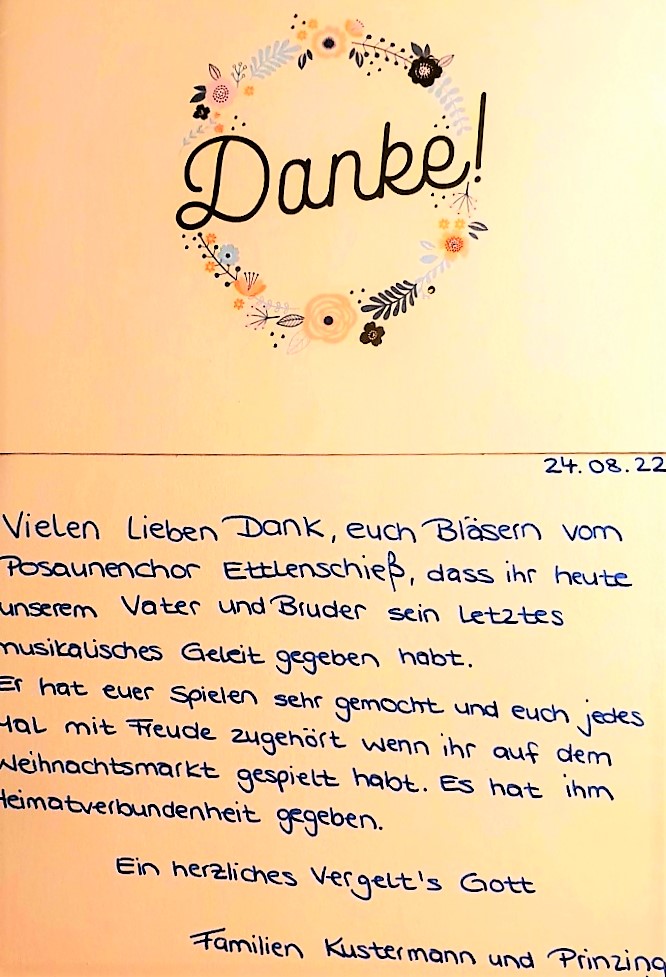 Danke!
24.08.22
Vielen Lieben Dank, euch Bläsern vom
Posaunenchor Ettlenschieß, dass ihr heute
unserem Vater und Bruder sein letztes
musikalisches Geleit gegeben habt.
Er hat euer Spielen sehr gemocht und euch jedes
Mal mit Freude zugehört wenn ihr auf dem
Weihnachtsmarkt gespielt habt. Es hat ihm
Heimatverbundenheit gegeben.
Ein herzliches Vergelt's Gott
Familien Kustermann und Prinzing